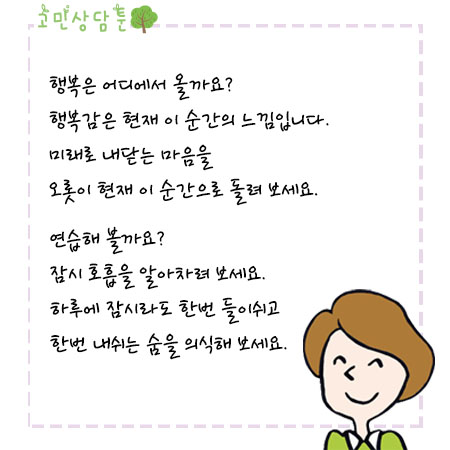 고민상담툰
행복은 어디에서 올까요?
행복감은 현재 이 순간의 느낌입니다.
미래로 내닫는 마음을
오롯이 현재 이 순간으로 돌려 보세요.
연습해 볼까요?
잠시 호흡을 알아차려 보세요.
하루에 잠시라도 한번 들이쉬고
한번 내쉬는 숨을 의식해 보세요.